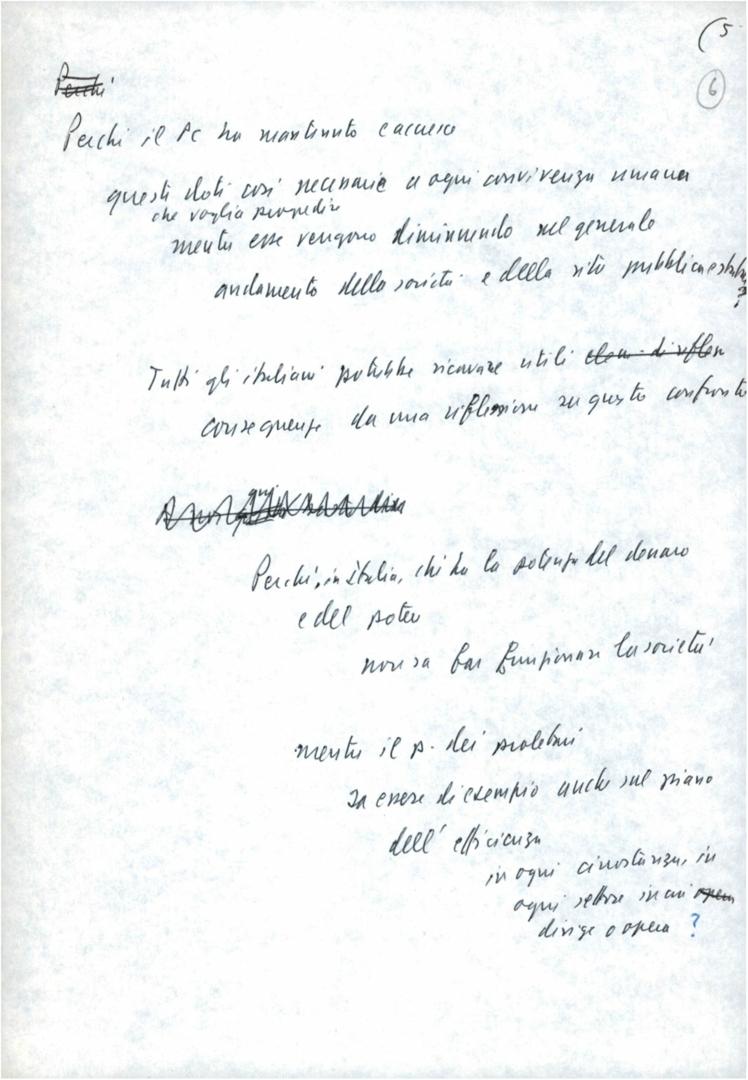 (5
6
Perché
Perché il Pc ha mantenuto e accresce
queste doti così necessarie a ogni convivenza umana
che voglia progredire
mentre esse vengono diminuendo nel generale
andamento della società e della vita pubblica e statale
?
Tutti gli italiani potrebbe ricavare utili
conseguenze da una riflessione su questo confronto
Perché, in Italia, chi ha la potenza del denaro
e del potere
non sa far funzionare la società
mentre il p. dei proletari
sa essere di esempio anche sul piano
dell'efficienza
in ogni circostanza, in
ogni settore in cui opera
dirige o opera ?